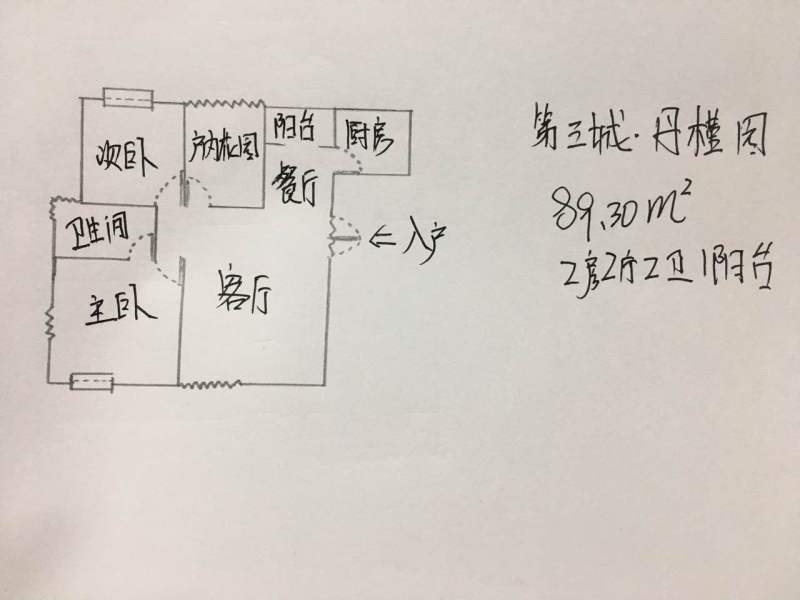 次卧
户内花园
阳台
厨房
餐厅
卫生间
主卧
客厅
⇐入户
第三城·丹槿园
89.30m²
2房2厅2卫1阳台